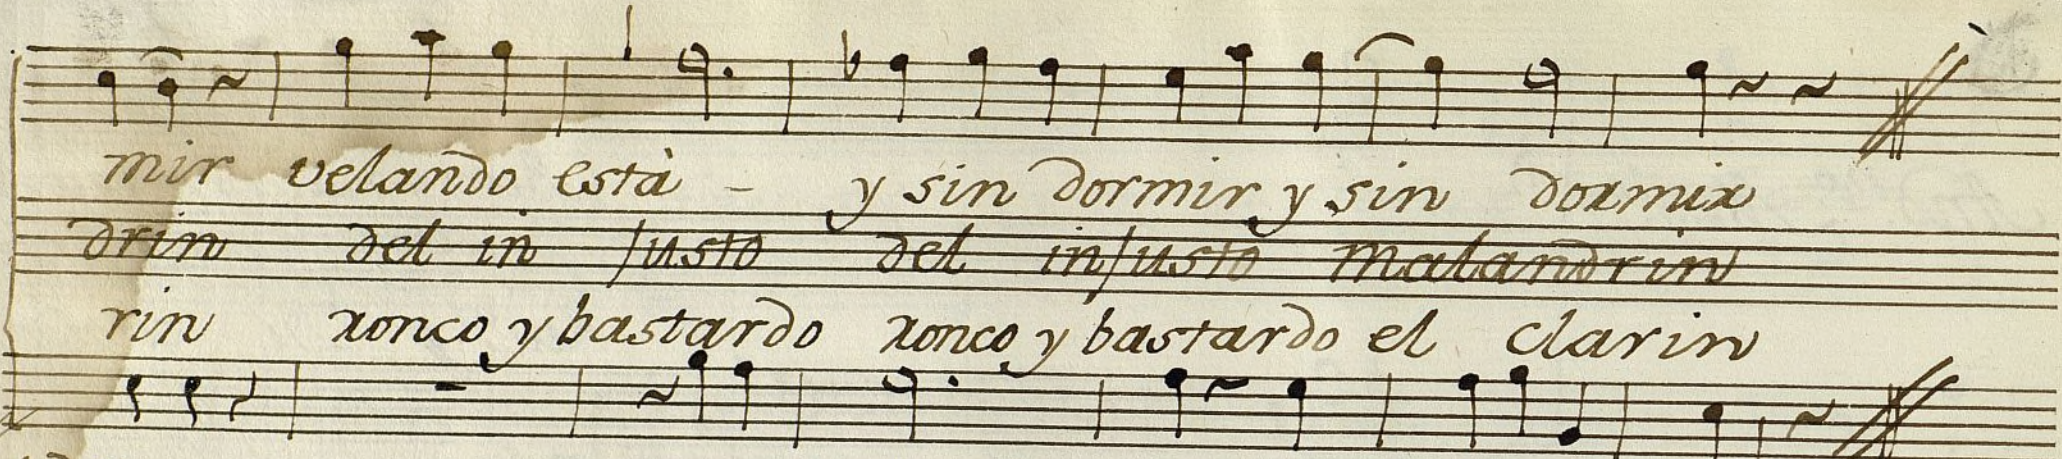 mir velando està - y sin dormir y sin dormir
drin del in justo del injusto Malandrin
rin ronco y bastardo ronco y bastardo el clarin